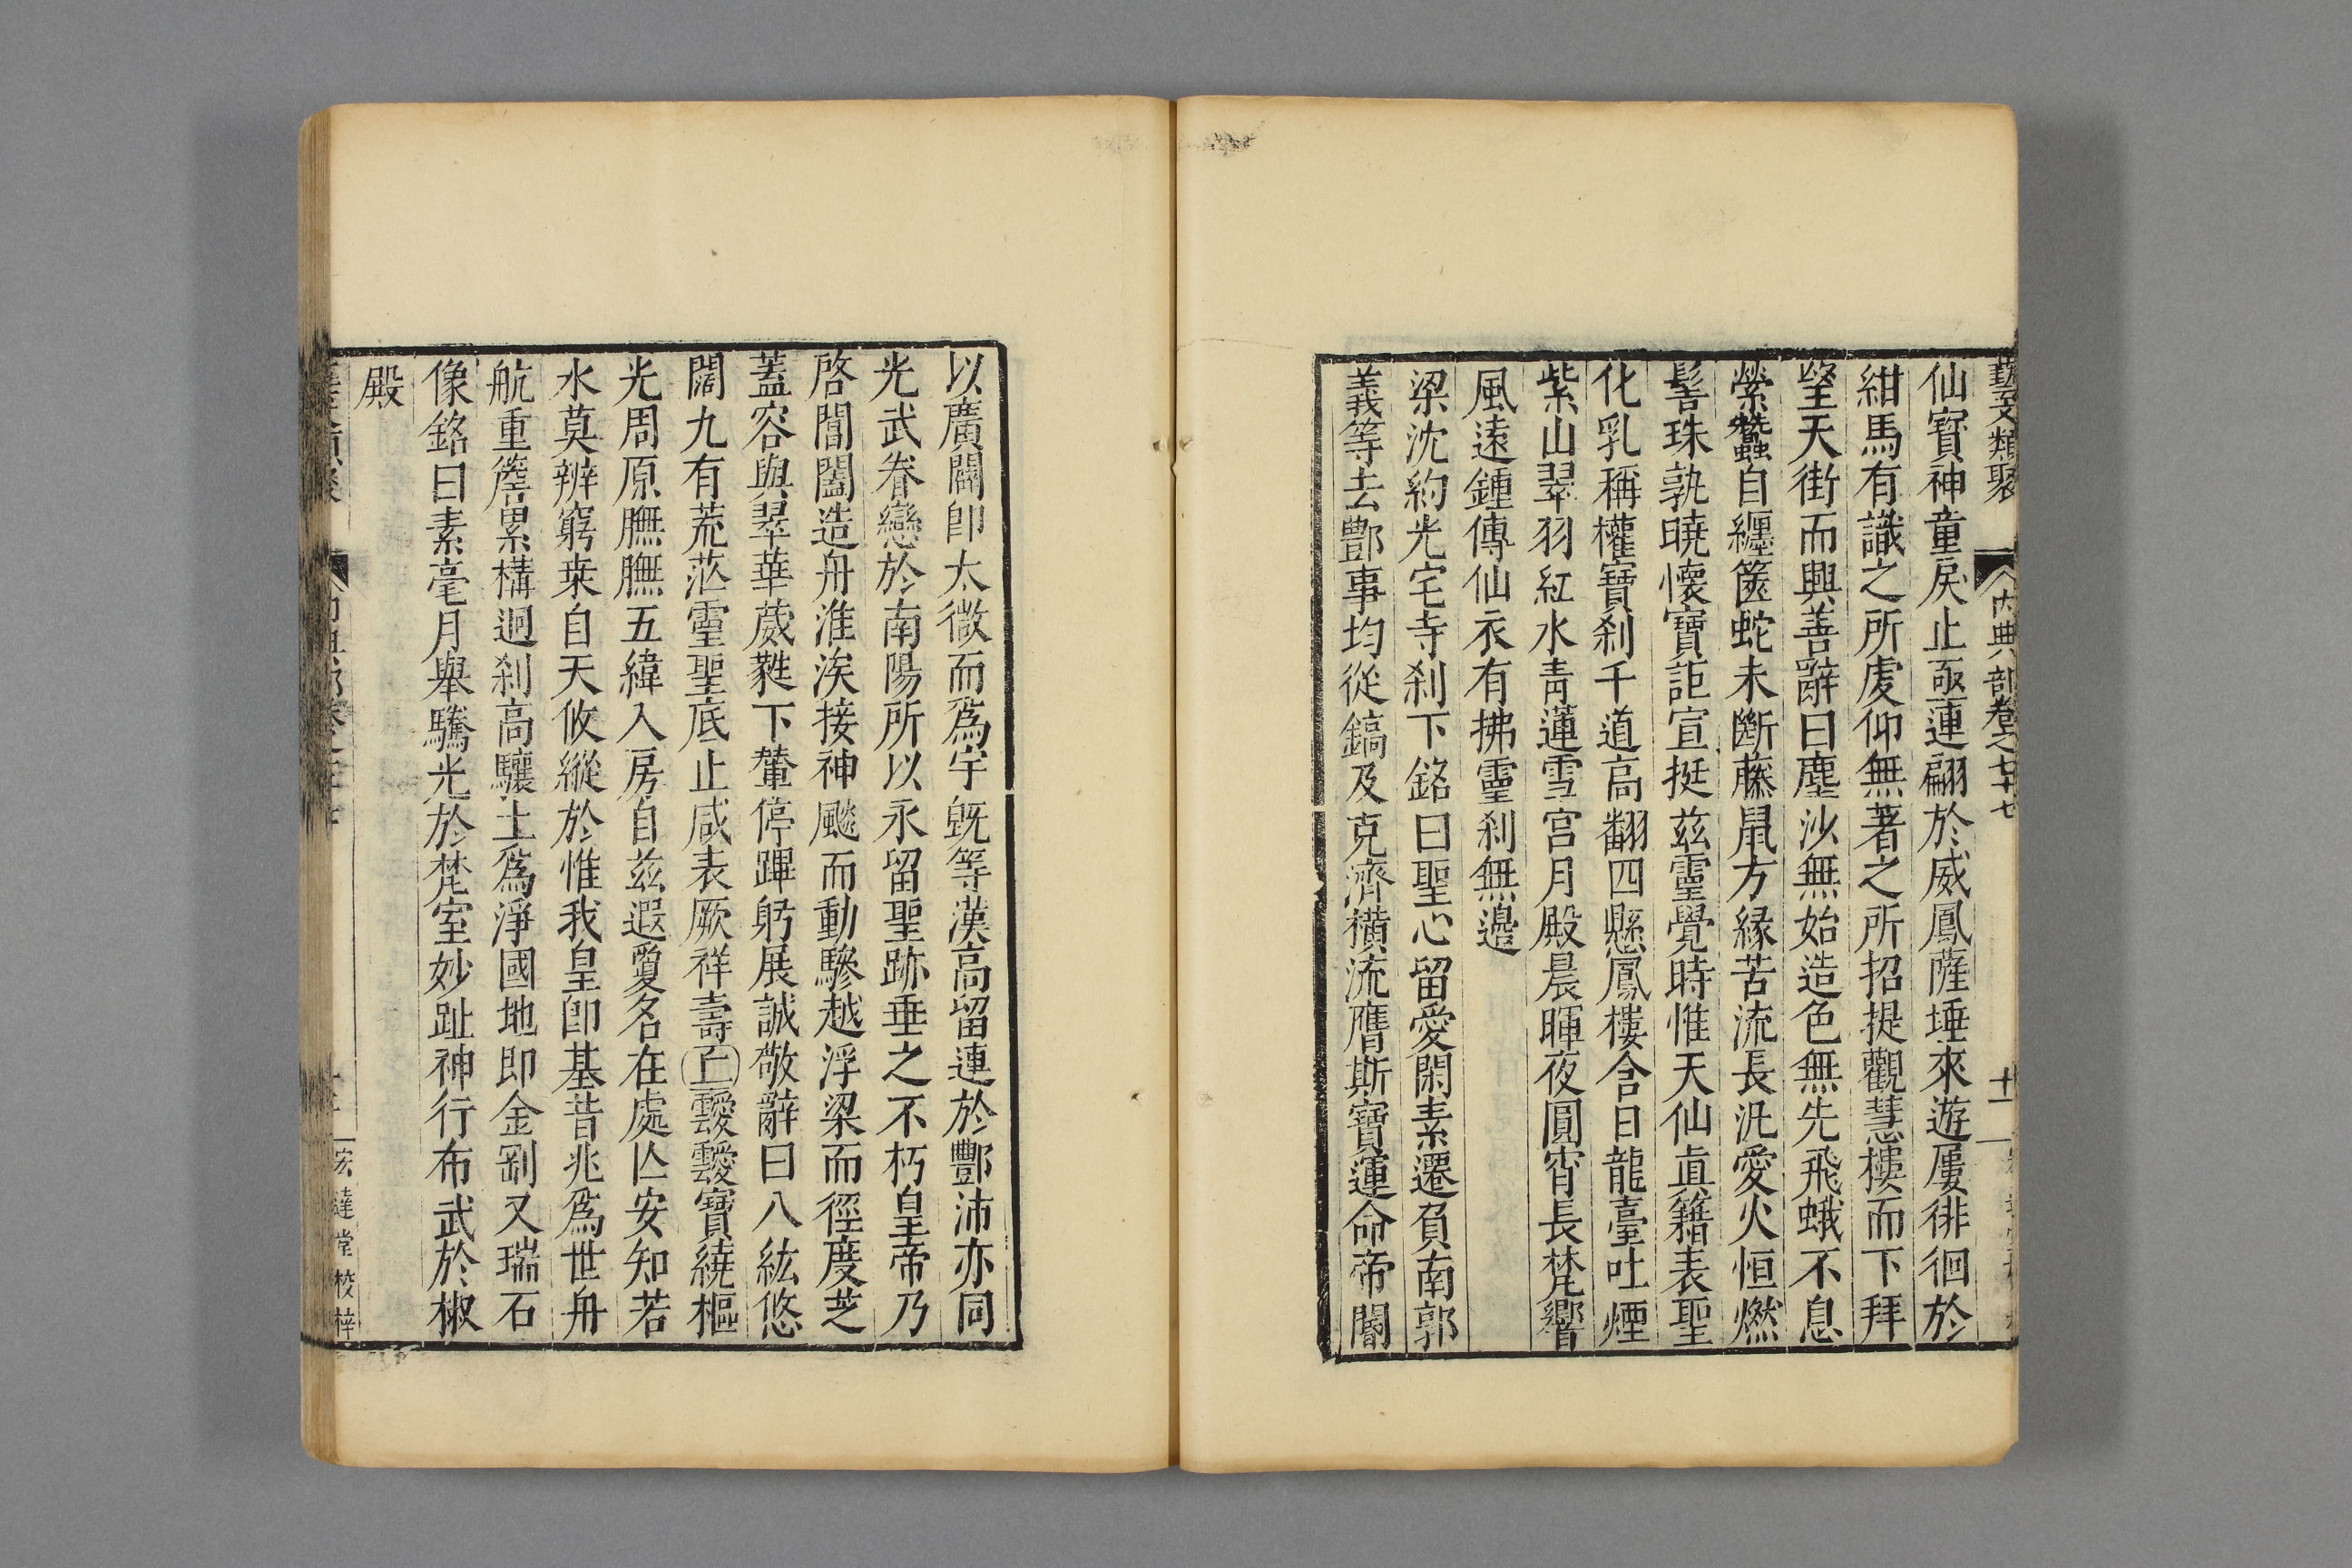 藝文類聚 內典部卷之七十七 十一
仙寶神童戾止亟連翩於威鳳薩埵來遊屢徘徊於
紺馬有識之所虔仰無著之所招提觀慧樓而下拜
望天街而興善辭曰塵沙無始造色無先飛蛾不息
縈蠶自纏篋蛇未斷藤鼠方緣苦流長汎愛火恒燃
髻珠孰曉懷寶詎宣挺茲靈覺時惟天仙眞籍表聖
化乳稱權寶刹千道高翻四懸鳳樓含日龍臺吐煙
紫山翠羽紅水靑蓮雪宮月殿晨暉夜圓宵長梵響
風遠鍾傳仙衣有拂靈刹無邊
梁沈約光宅寺刹下銘曰聖心留愛閑素遷負南郭
義等去酆事均從鎬及克濟橫流膺斯寶運命帝閽
以廣闢卽太微而爲宇旣等漢高留連於酆沛亦同
光武眷戀於南陽所以永留聖跡垂之不朽皇帝乃
啓閶闔造舟淮涘接神颷而動驂越浮梁而徑度芝
蓋容與翠華葳蕤下輦停蹕躬展誠敬辭曰八紘悠
闊九有荒茫靈聖底止咸表厥祥壽丘靉靉寶繞樞
光周原膴膴五緯入房自茲遐夐名在處亾安知若
水莫辨窮桒自天攸縱於惟我皇卽基昔兆爲世舟
航重簷累構迥刹高驤土爲淨國地即金剛又瑞石
像銘曰素毫月舉騰光於梵室妙趾神行布武於椒
殿
宏達堂校梓